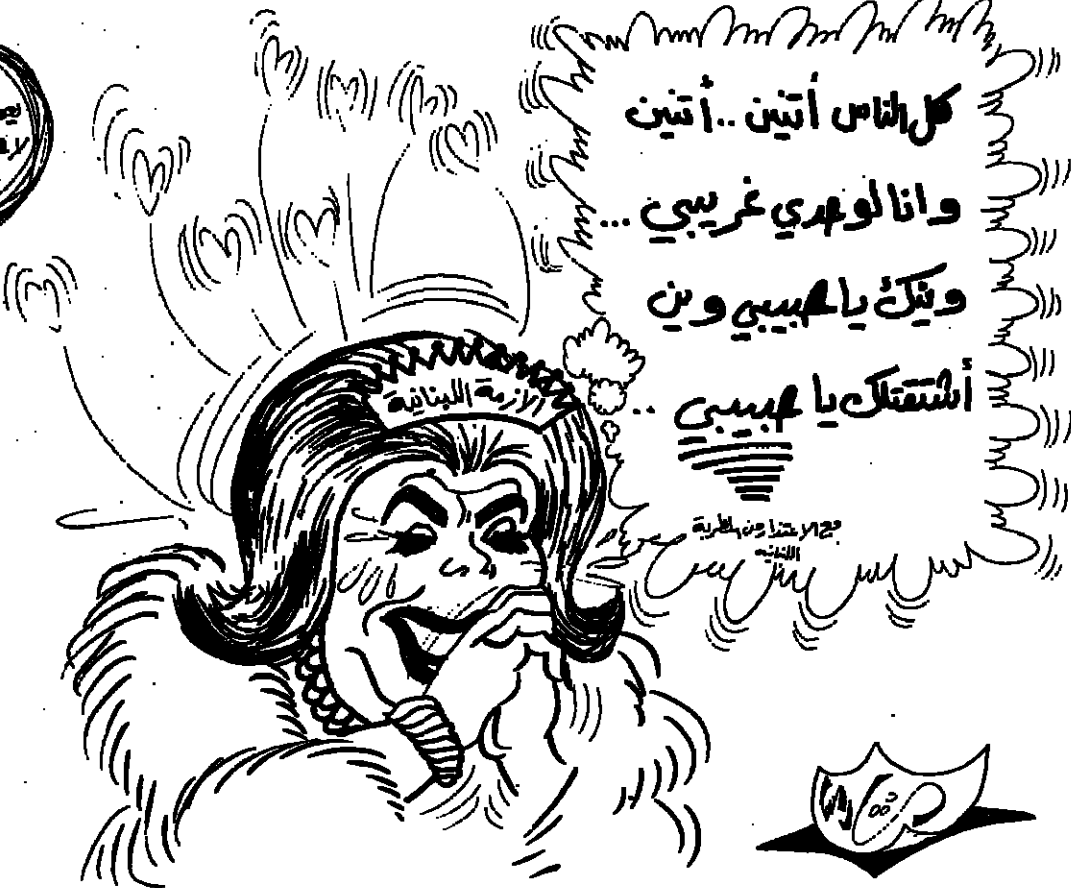 كل الناس أتنين .. أتنين
وانا لوحدي غريبي ...
وينك يا حبيبي وين
أشتقتلك يا حبيبي ..
مع الاعتذار من المطربة
اللبنانية
الازمة اللبنانية